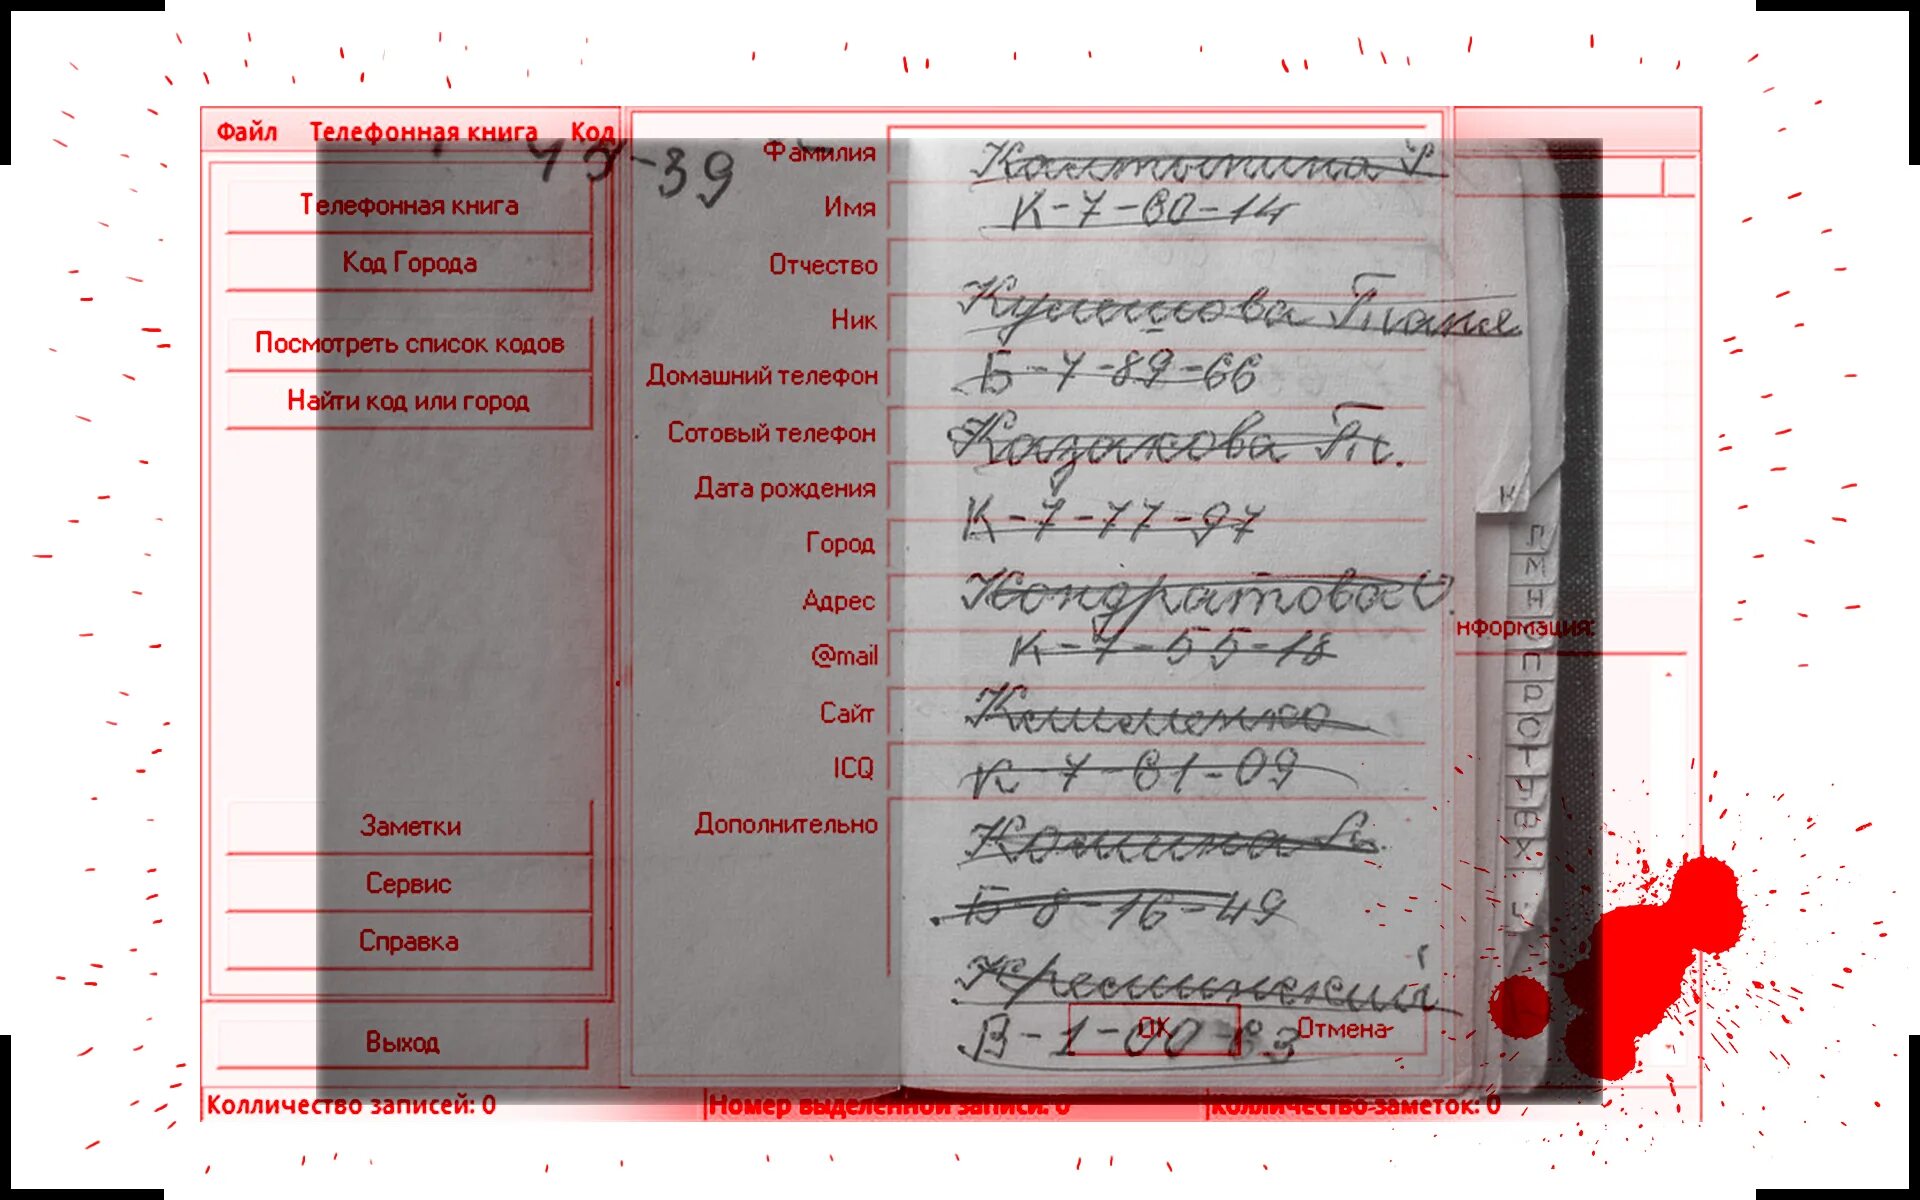 Файл Телефонная книга Код
Телефонная книга
Код Города
Посмотреть список кодов
Найти код или город
Заметки
Сервис
Справка
Выход
-39
Фамилия
Имя
Отчество
Ник
Домашний телефон
Сотовый телефон
Дата рождения
Город
Адрес
@mail
Сайт
ICQ
Дополнительно
К-7-60-14
Кулешова Таня
Б-7-89-66
Казакова Т.
К-7-77-97
Кондратова О.
К-7-55-18
Клименко
К-7-61-09
Б-8-16-49
В-1-00-63
ОК Отмена
К
Л
М
Н
О
П
Р
С
Т
Ч
Ф
Х
нформация:
Колличество записей: 0 Номер выделенной записи: 0 Колличество заметок: 0